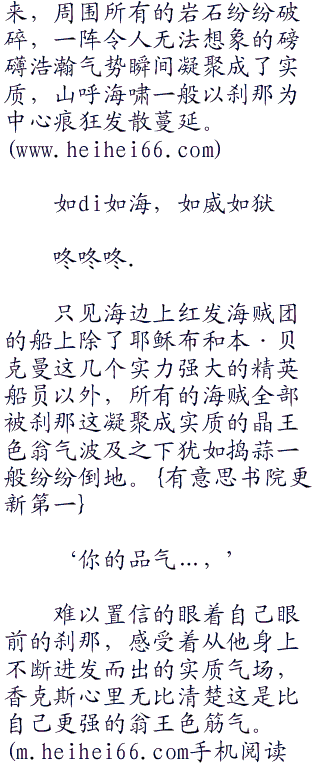 来，周围所有的岩石纷纷破
碎，一阵令人无法想象的磅
礴浩瀚气势瞬间凝聚成了实
质，山呼海啸一般以刹那为
中心痕狂发散蔓延。
(www.heihei66.com)
如di如海，如威如狱
咚咚咚.
只见海边上红发海贼团
的船上除了耶稣布和本·贝
克曼这几个实力强大的精英
船员以外，所有的海贼全部
被刹那这凝聚成实质的晶王
色翁气波及之下犹如捣蒜一
般纷纷倒地。{有意思书院更
新第一}
‘你的品气…，’
难以置信的眼着自己眼
前的刹那，感受着从他身上
不断迸发而出的实质气场，
香克斯心里无比清楚这是比
自己更强的翁王色筋气。
(m.heihei66.com手机阅读